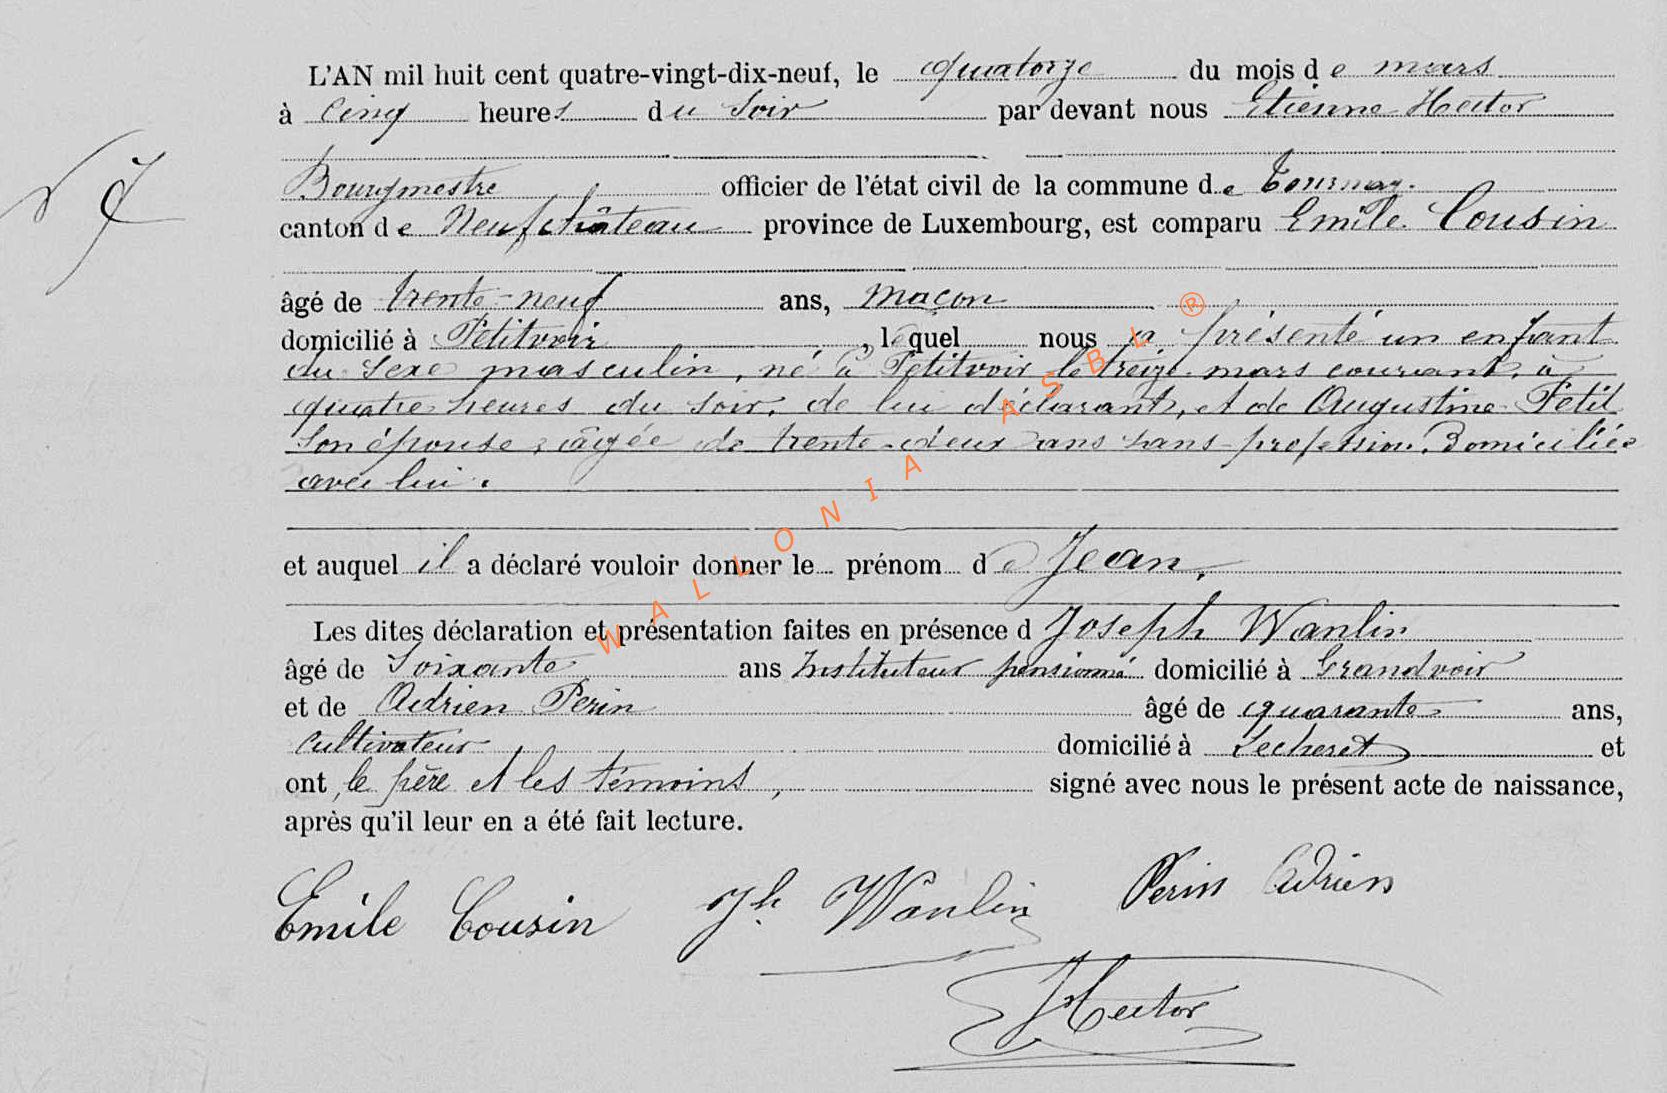 L'AN mil huit cent quatre-vingt-dix-neuf, le quatorze du mois de mars
à cinq heures du soir par devant nous Etienne Hector
Bourgmestre officier de l'état civil de la commune de Tournay.
N 7
canton de Neufchâteau province de Luxembourg, est comparu Emile Cousin
âgé de trente-neuf ans, maçon
domicilié à Petitvoir, lequel nous a présenté un enfant
du sexe masculin, né à Petitvoir le treize mars courant, à
quatre heures du soir, de lui déclarant, et de Augustine Petit
son épouse, âgée de trente-deux ans sans profession. Domiciliée
avec lui.
et auquel il a déclaré vouloir donner le prénom de Jean.
Les dites déclaration et présentation faites en présence d Joseph Wanlin
âgé de soixante ans Instituteur pensionné domicilié à Grandvoir
et de Adrien Perin âgé de quarante ans,
cultivateur domicilié à Lecheret et
ont, le père et les témoins, signé avec nous le présent acte de naissance,
après qu'il leur en a été fait lecture.
Emile Cousin Jh. Wanlin Perin Adrien
Hector
WALLONIA ASBL ®